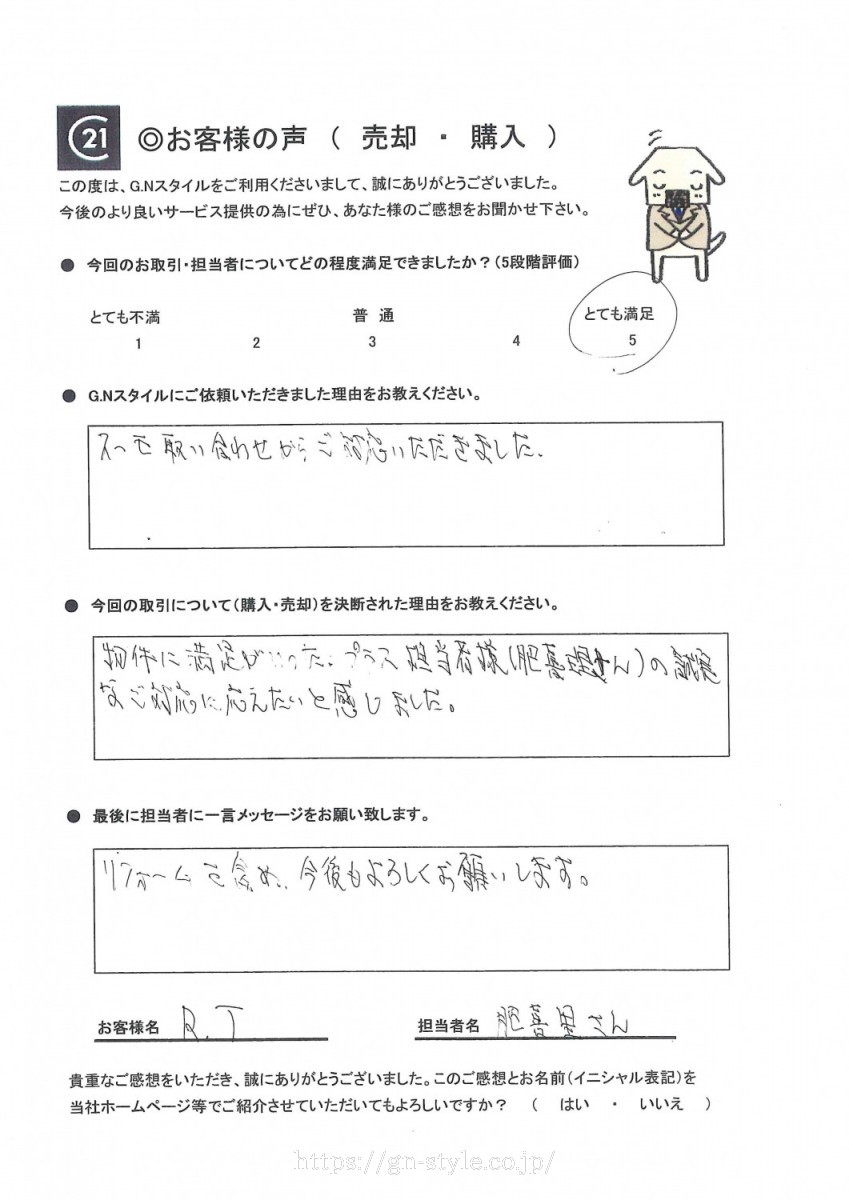 C21
◎お客様の声 ( 売却 ・ 購入 )
この度は、G.Nスタイルをご利用くださいまして、誠にありがとうございました。
今後のより良いサービス提供の為にぜひ、あなた様のご感想をお聞かせ下さい。
● 今回のお取引・担当者についてどの程度満足できましたか?(5段階評価)
とても不満 普 通 とても満足
1 2 3 4 5
● G.Nスタイルにご依頼いただきました理由をお教えください。
い合わせからご対応いただきました.
● 今回の取引について(購入・売却)を決断された理由をお教えください。
物件に満足がいった、プラス担当者様(肥喜里さん)の誠実
なご対応に応えたいと感じました。
● 最後に担当者に一言メッセージをお願い致します。
リフォームを含め、今後もよろしくお願いします。
お客様名 R.T 担当者名 肥喜里さん
貴重なご感想をいただき、誠にありがとうございました。このご感想とお名前(イニシャル表記)を
当社ホームページ等でご紹介させていただいてもよろしいですか? ( はい ・ いいえ )
https://gn-style.co.jp/